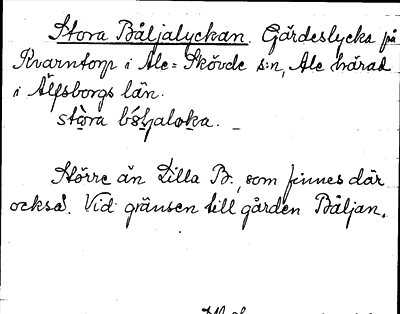 Stora Bäljalyckan. Gärdeslycka på
Kvarntorp i Ale=Skövde s:n, Ale härad
i Älfsborgs län.
Större än Lilla B., som finnes där
också. Vid gränsen till gården Bäljan.